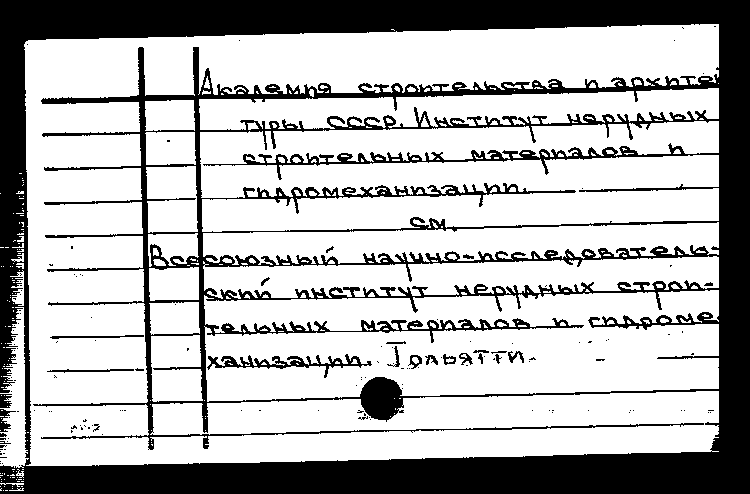 Академия строительства и архитек
туры СССР. Институт нерудных
строительных материалов и
гидромеханизации.
см.
Всесоюзный научно-исследователь-
ский институт нерудных строи-
тельных материалов и гидроме-
ханизации. Тольятти.